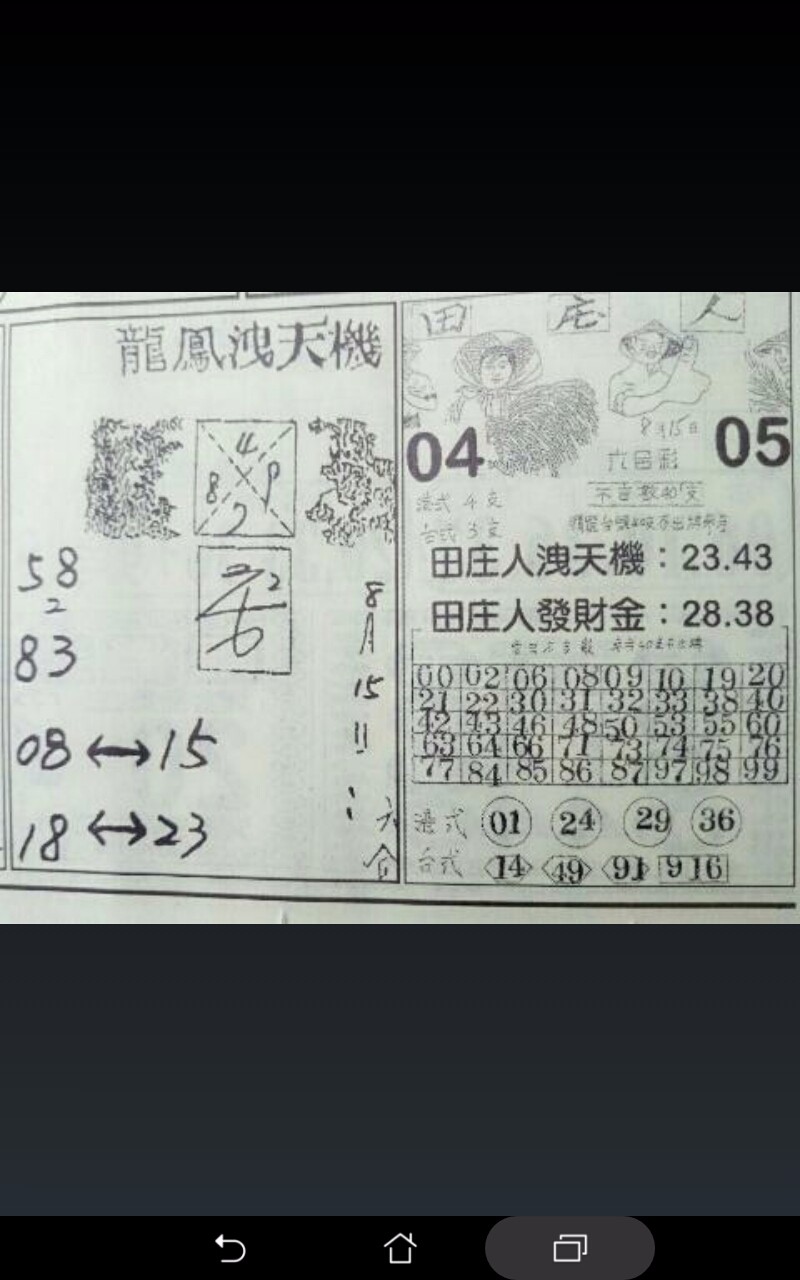 龍鳳洩天機
4
8 9
2
58
2
83
8月15日
08↔15
18↔23
六合
田庄人
8月15日
04 六合彩 05
港式 4支
台式 3支
不含數40支
田庄人洩天機：23.43
田庄人發財金：28.38
00 02 06 08 09 10 19 20
21 22 30 31 32 33 38 40
42 43 46 48 50 53 55 60
63 64 66 71 73 74 75 76
77 84 85 86 87 97 98 99
港式 01 24 29 36
台式 14 49 91 916